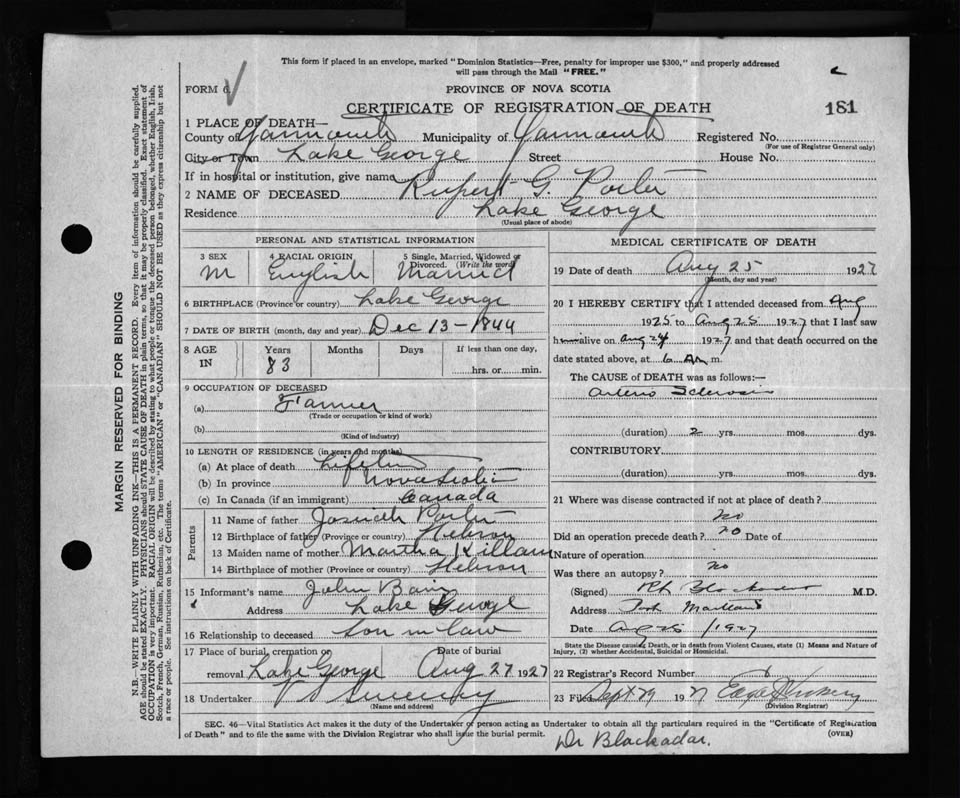 This form if placed in an envelope, marked "Dominion Statistics—Free, penalty for improper use $300," and properly addressed
will pass through the Mail "FREE."
FORM 6.
PROVINCE OF NOVA SCOTIA
CERTIFICATE OF REGISTRATION OF DEATH
181
1 PLACE OF DEATH—
County of Yarmouth Municipality of Yarmouth Registered No.
(For use of Registrar General only)
City or Town Lake George Street House No.
If in hospital or institution, give name
2 NAME OF DECEASED Rupert G. Porter
Residence Lake George
(Usual place of abode)
PERSONAL AND STATISTICAL INFORMATION
3 SEX M
4 RACIAL ORIGIN English
5 Single, Married, Widowed or Divorced. (Write the word) Married
6 BIRTHPLACE (Province or country) Lake George
7 DATE OF BIRTH (month, day and year) Dec 13-1844
8 AGE IN Years 83 Months Days If less than one day, hrs. or min.
9 OCCUPATION OF DECEASED
(a) Farmer
(Trade or occupation or kind of work)
(b)
(Kind of industry)
10 LENGTH OF RESIDENCE (in years and months)
(a) At place of death Lifetime
(b) In province Nova Scotia
(c) In Canada (if an immigrant) Canada
Parents
11 Name of father Josiah Porter
12 Birthplace of father (Province or country) Hebron
13 Maiden name of mother Martha Killam
14 Birthplace of mother (Province or country) Hebron
15 Informant's name John Bain
Address Lake George
16 Relationship to deceased Son in law
17 Place of burial, cremation or removal Lake George Date of burial Aug 27 1927
18 Undertaker V S Sweeny
(Name and address)
MEDICAL CERTIFICATE OF DEATH
19 Date of death Aug 25 1927
(Month, day and year)
20 I HEREBY CERTIFY that I attended deceased from Aug
1925 to Aug 25 1927 that I last saw
him alive on Aug 24 1927 and that death occurred on the
date stated above, at 6 AM m
The CAUSE OF DEATH was as follows:—
Arterio Sclerosis
(duration) 2 yrs. mos. dys.
CONTRIBUTORY
(duration) yrs. mos. dys.
21 Where was disease contracted if not at place of death?
no
Did an operation precede death? no Date of
Nature of operation
Was there an autopsy? no
(Signed) Blackadar M.D.
Address Port Maitland
Date 1927
State the Disease causing Death, or in death from Violent Causes, state (1) Means and Nature of Injury, (2) whether Accidental, Suicidal or Homicidal.
22 Registrar's Record Number
23 Filed Sept 29 1927
(Division Registrar)
SEC. 46—Vital Statistics Act makes it the duty of the Undertaker or person acting as Undertaker to obtain all the particulars required in the "Certificate of Registration
of Death" and to file the same with the Division Registrar who shall issue the burial permit.
(OVER)
Dr Blackadar.
MARGIN RESERVED FOR BINDING
N.B.—WRITE PLAINLY WITH UNFADING INK—THIS IS A PERMANENT RECORD. Every item of information should be carefully supplied.
AGE should be stated EXACTLY. PHYSICIANS should STATE CAUSE OF DEATH in plain terms, so that it may be properly classified. Exact statement of
OCCUPATION is very important. RACIAL ORIGIN will be described by stating to what people or tongue the deceased person belonged, whether English, Irish,
Scotch, French, German, Russian, Ruthenian, etc. The terms "AMERICAN" or "CANADIAN" SHOULD NOT BE USED as they express citizenship but not
a race or people. See instructions on back of Certificate.